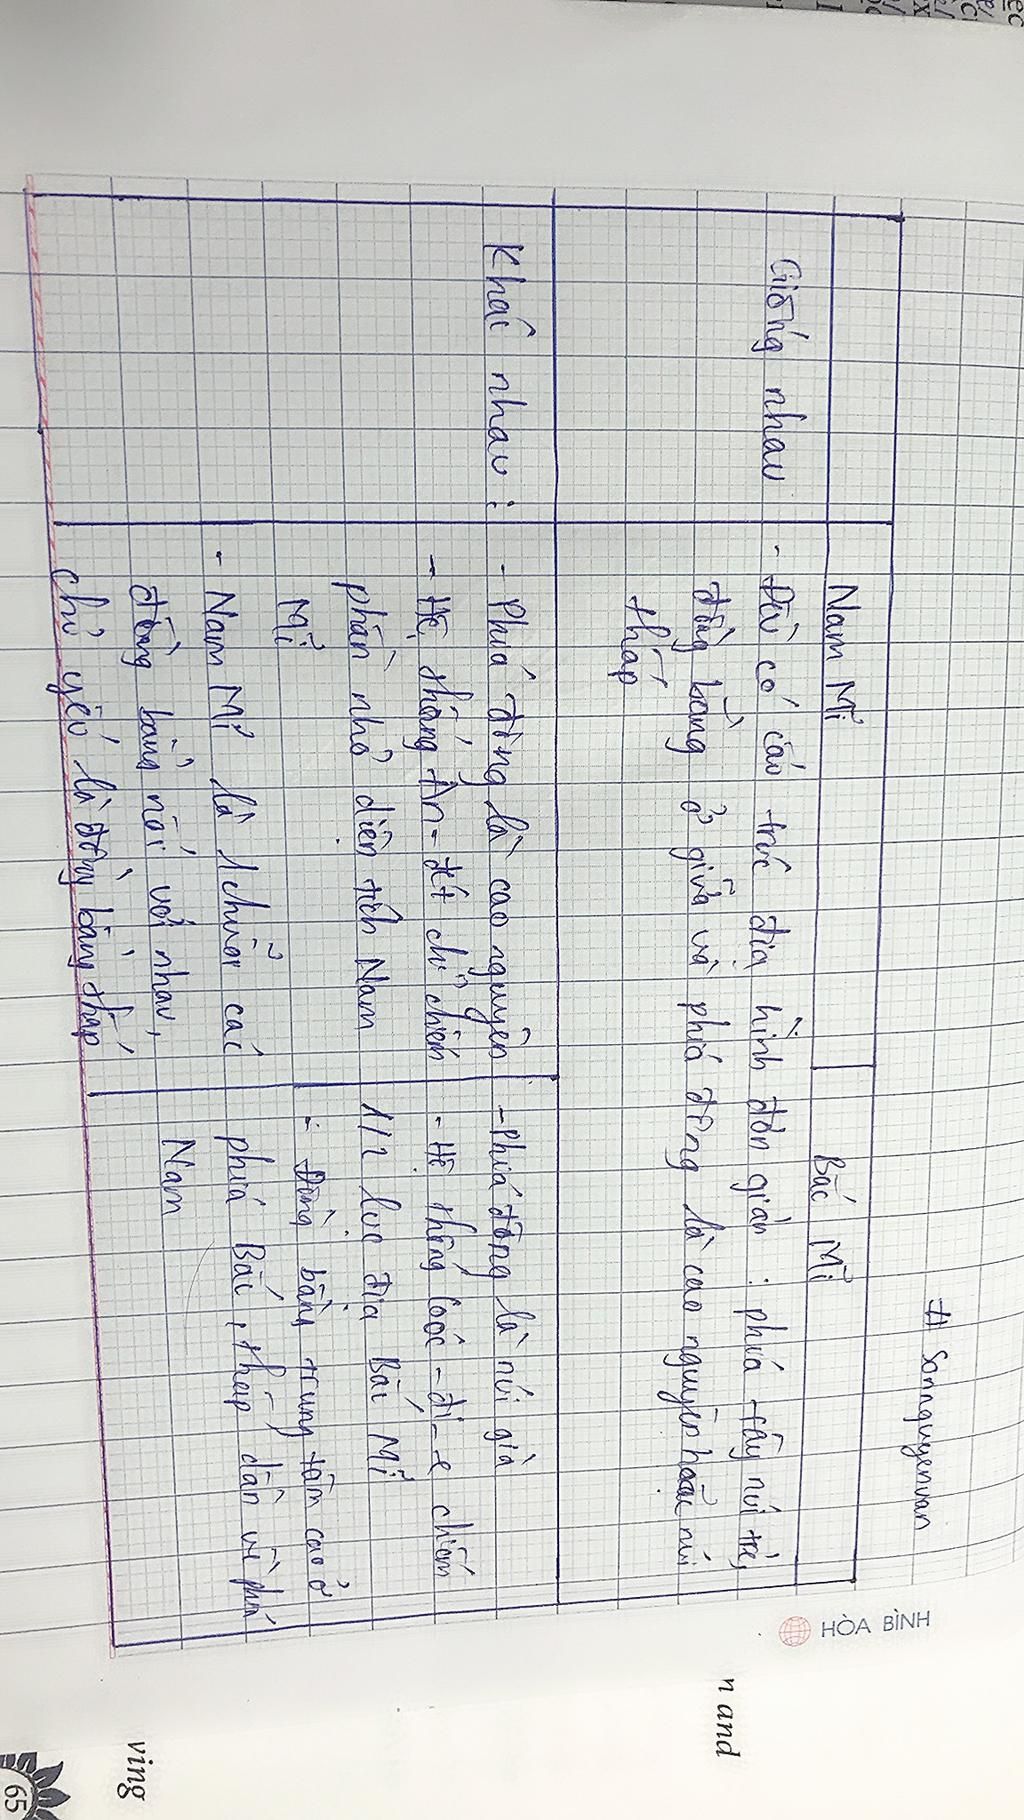 # sonnguyenvan
Nam Mĩ
Bắc Mĩ
Giống nhau
- Đều có cấu trúc địa hình đơn giản : phía tây núi trẻ,
đồng bằng ở giữa và phía đông là cao nguyên hoặc núi
thấp
Khác nhau :
- Phía đông là cao nguyên
- Hệ thống An-đét chỉ chiếm
phần nhỏ diện tích Nam
Mĩ
- Nam Mĩ là 1 chuỗi các
đồng bằng nối với nhau,
chủ yếu là đồng bằng thấp
- Phía đông là núi già
- Hệ thống Coóc-đi-e chiếm
1/2 lục địa Bắc Mĩ
- Đồng bằng trung tâm cao ở
phía Bắc, thấp dần về phía
Nam
HÒA BÌNH
n and
ving
65